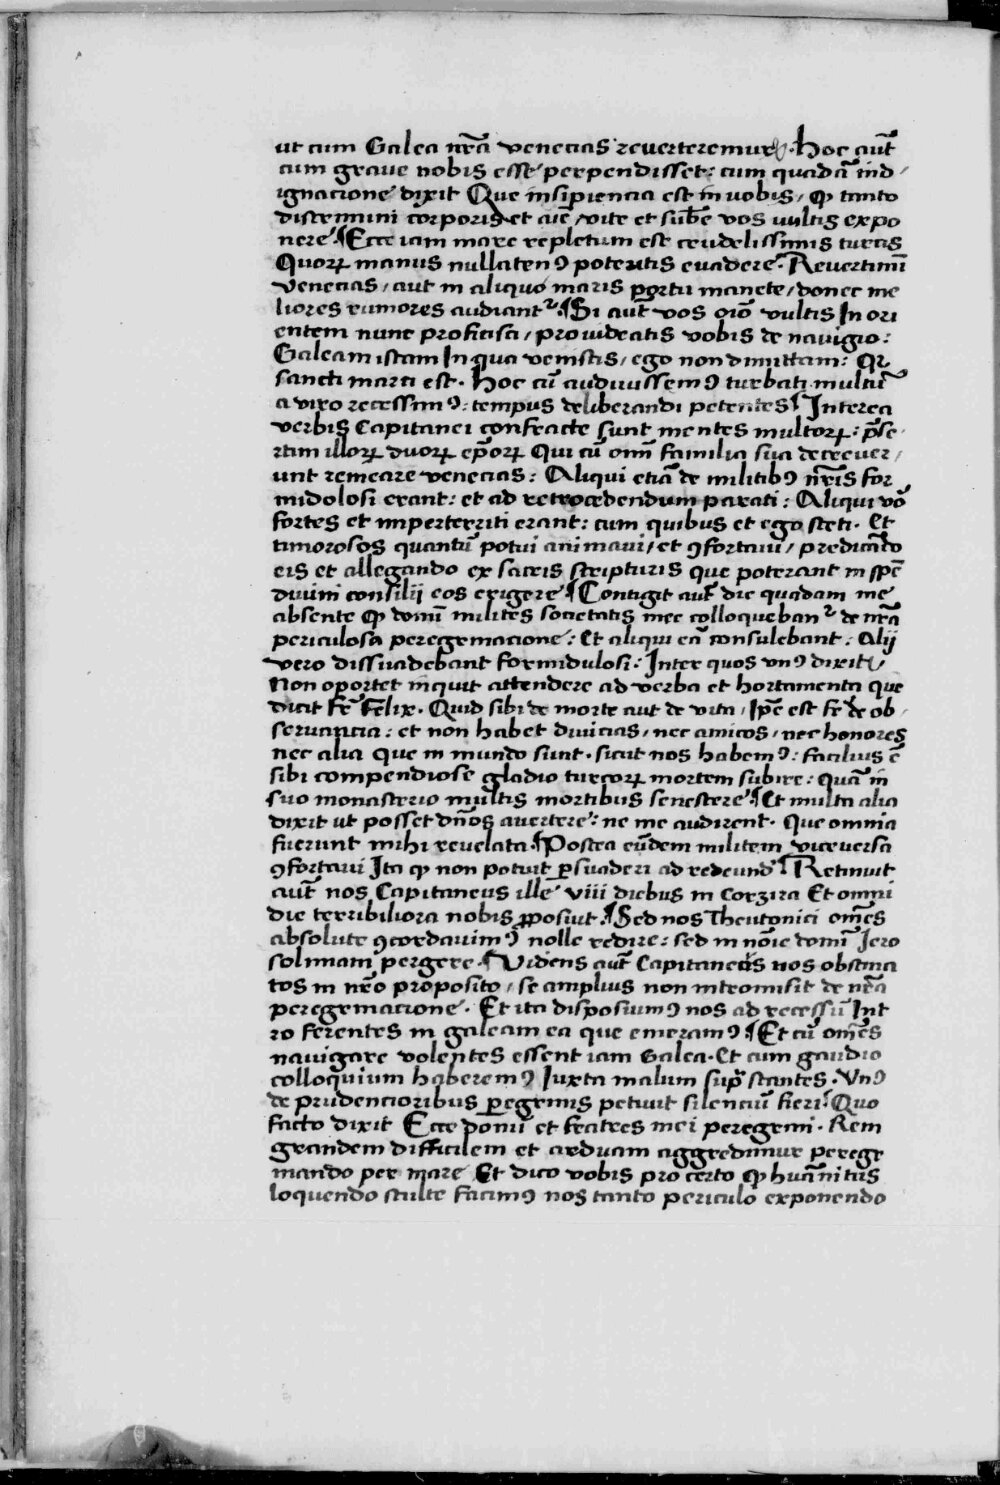 ut cum Galea nr̄a venecias reverteremur. Hoc aut̄
cum grave nobis esse perpendisset: cum quadā ind
ignacione dixit Que insipiencia est in vobis, ꝙ tanto
discrimini corporis et aīe, vite et sub̄e vos vultis expo
nere. ¶ Ecce iam mare repletum est crudelissimis turcis
Quorꝝ manus nullatenꝰ poteritis evadere. Revertimī
venecias, aut in aliquo maris portu manete, donec me
liores rumores audiantᷣ. ¶ Si aut̄ vos oīo vultis In ori
entem nunc proficisci, provideatis vobis de navigio:
Galeam istam In qua venistis, ego non dimittam: Qꝛ
sancti marci est. Hoc cū audivissemꝰ turbati multū
a viro recessimꝰ: tempus deliberandi petentes ¶ Interea
verbis Capitanei confracte sunt mentes multorꝝ: p̄se
rtim illorꝝ duorꝝ ep̄orꝝ Qui cū om̄i familia sua decrever
unt remeare venecias: Aliqui etiā de militibꝰ nr̄is for
midolosi erant: et ad retrocedendum parati: Aliqui vō
fortes et imperterriti erant: cum quibus et ego steti. Et
timorosos quantū potui animavi, et ꝯfortavi, predicādo
eis et allegando ex sacris scripturis que poterant in sp̄e
divini consilij eos erigere ¶ Contigit aut̄ die quadam me
absente ꝙ domī milites societatis mee colloquebanᷣ de nr̄a
periculosa peregrinacione: Et aliqui eā consulebant: Alij
vero dissuadebant formidulosi: Inter quos unꝰ dixit,
Non oportet inquit attendere ad verba et hortamenta que
dicit fr̄ Felix. Quid sibi de morte aut de vita, Ip̄e est fr̄ de ob
servancia: et non habet divicias, nec amicos, nec honores
nec alia que in mundo sunt. sicut nos habemꝰ: facilius ē
sibi compendiose gladio turcorꝝ mortem subire: quā in
suo monasterio multis mortibus senescere. ¶ Et multa alia
dixit ut posset dn̄os avertere: ne me audirent. Que omnia
fuerunt mihi revelata. ¶ Postea eūdem militem viceversa
ꝯfortavi Ita ꝙ non potuit ꝑsuaderi ad redeund̄ ¶ Retinuit
aut̄ nos Capitaneus ille viii diebus in Corzira Et omni
die terribiliora nobis ꝓposuit. ¶ Sed nos Theutonici om̄es
absolute ꝯcordavimꝰ nolle redire: sed in noīe domī Jero
solimam pergere. ¶ Videns aut̄ Capitaneus nos obstina
tos in nr̄o proposito, se amplius non intromisit de nr̄a
peregrinacione. Et ita disposuimꝰ nos ad recessū Int
ro ferentes in galeam ea que emeramꝰ. ¶ Et cū om̄es
navigare volentes essent iam Galea. Et cum gaudio
colloquium haberemꝰ Juxta malum sup̄ stantes. Unꝰ
de prudencioribus ꝑegrinis petivit silenciū fieri. Quo
facto dixit Ecce domī et fratres mei peregrini. Rem
grandem difficilem et arduam aggredimur peregr
inando per mare Et dico vobis pro certo ꝙ huānitus
loquendo stulte facimꝰ nos tanto periculo exponendo